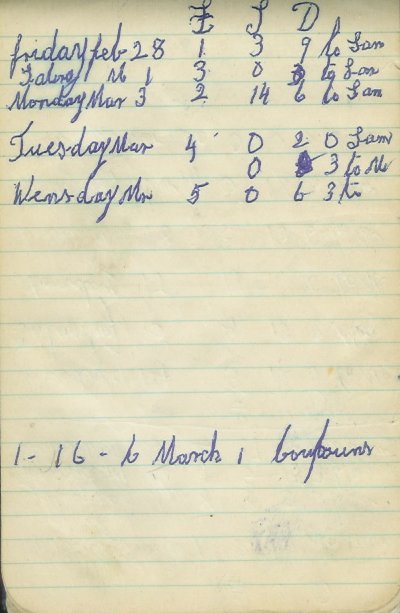 £ S D
friday feb 28 1 3 9 to Sam
M 1 3 0 to Sam
Monday Mar 3 2 14 6 to Sam
Tuesday Mar 4 0 2 0 Sam
0 3 to M
Wensday Mr 5 0 6 3 to
1 - 16 - 6 March 1 Coupouns